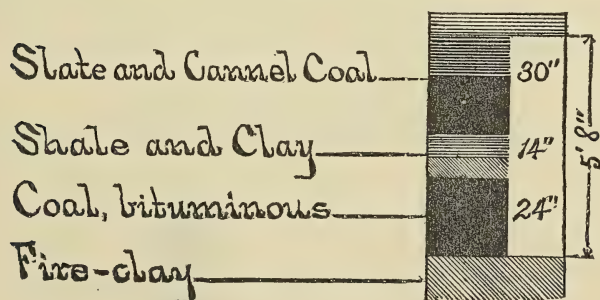 Slate and Cannel Coal
30"
Shale and Clay
14"
5' 8"
Coal, bituminous
24"
Fire-clay